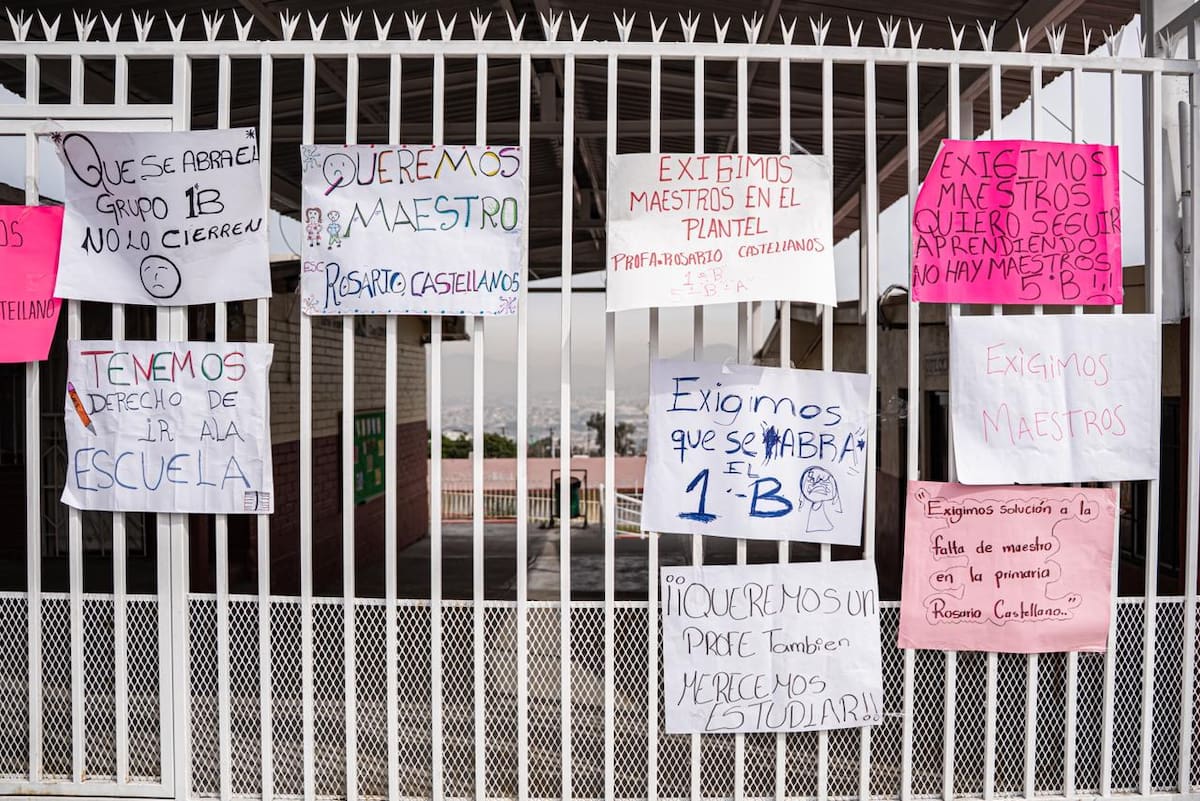 OS
S
CASTELLANO
QUE SE ABRA EL
GRUPO 1B
NO LO CIERREN
TENEMOS
DERECHO DE
IR ALA
ESCUELA
QUEREMOS
MAESTRO
ESC
ROSARIO CASTELLANOS
EXIGIMOS
MAESTROS EN EL
PLANTEL
PROFA.ROSARIO CASTELLANOS
1·B
Exigimos
que se ABRA
EL
1·-B
¡¡QUEREMOS Un
PROFE También
MERECEMOS
ESTUDIAR!!
EXIGIMOS
MAESTROS
QUIERO SEGUIR
APRENDIENDO
NO HAY MAESTROS
5·B!!
EXIGIMOS
MAESTROS
"Exigimos solución a la
falta de maestro
en la primaria
Rosario Castellano.."